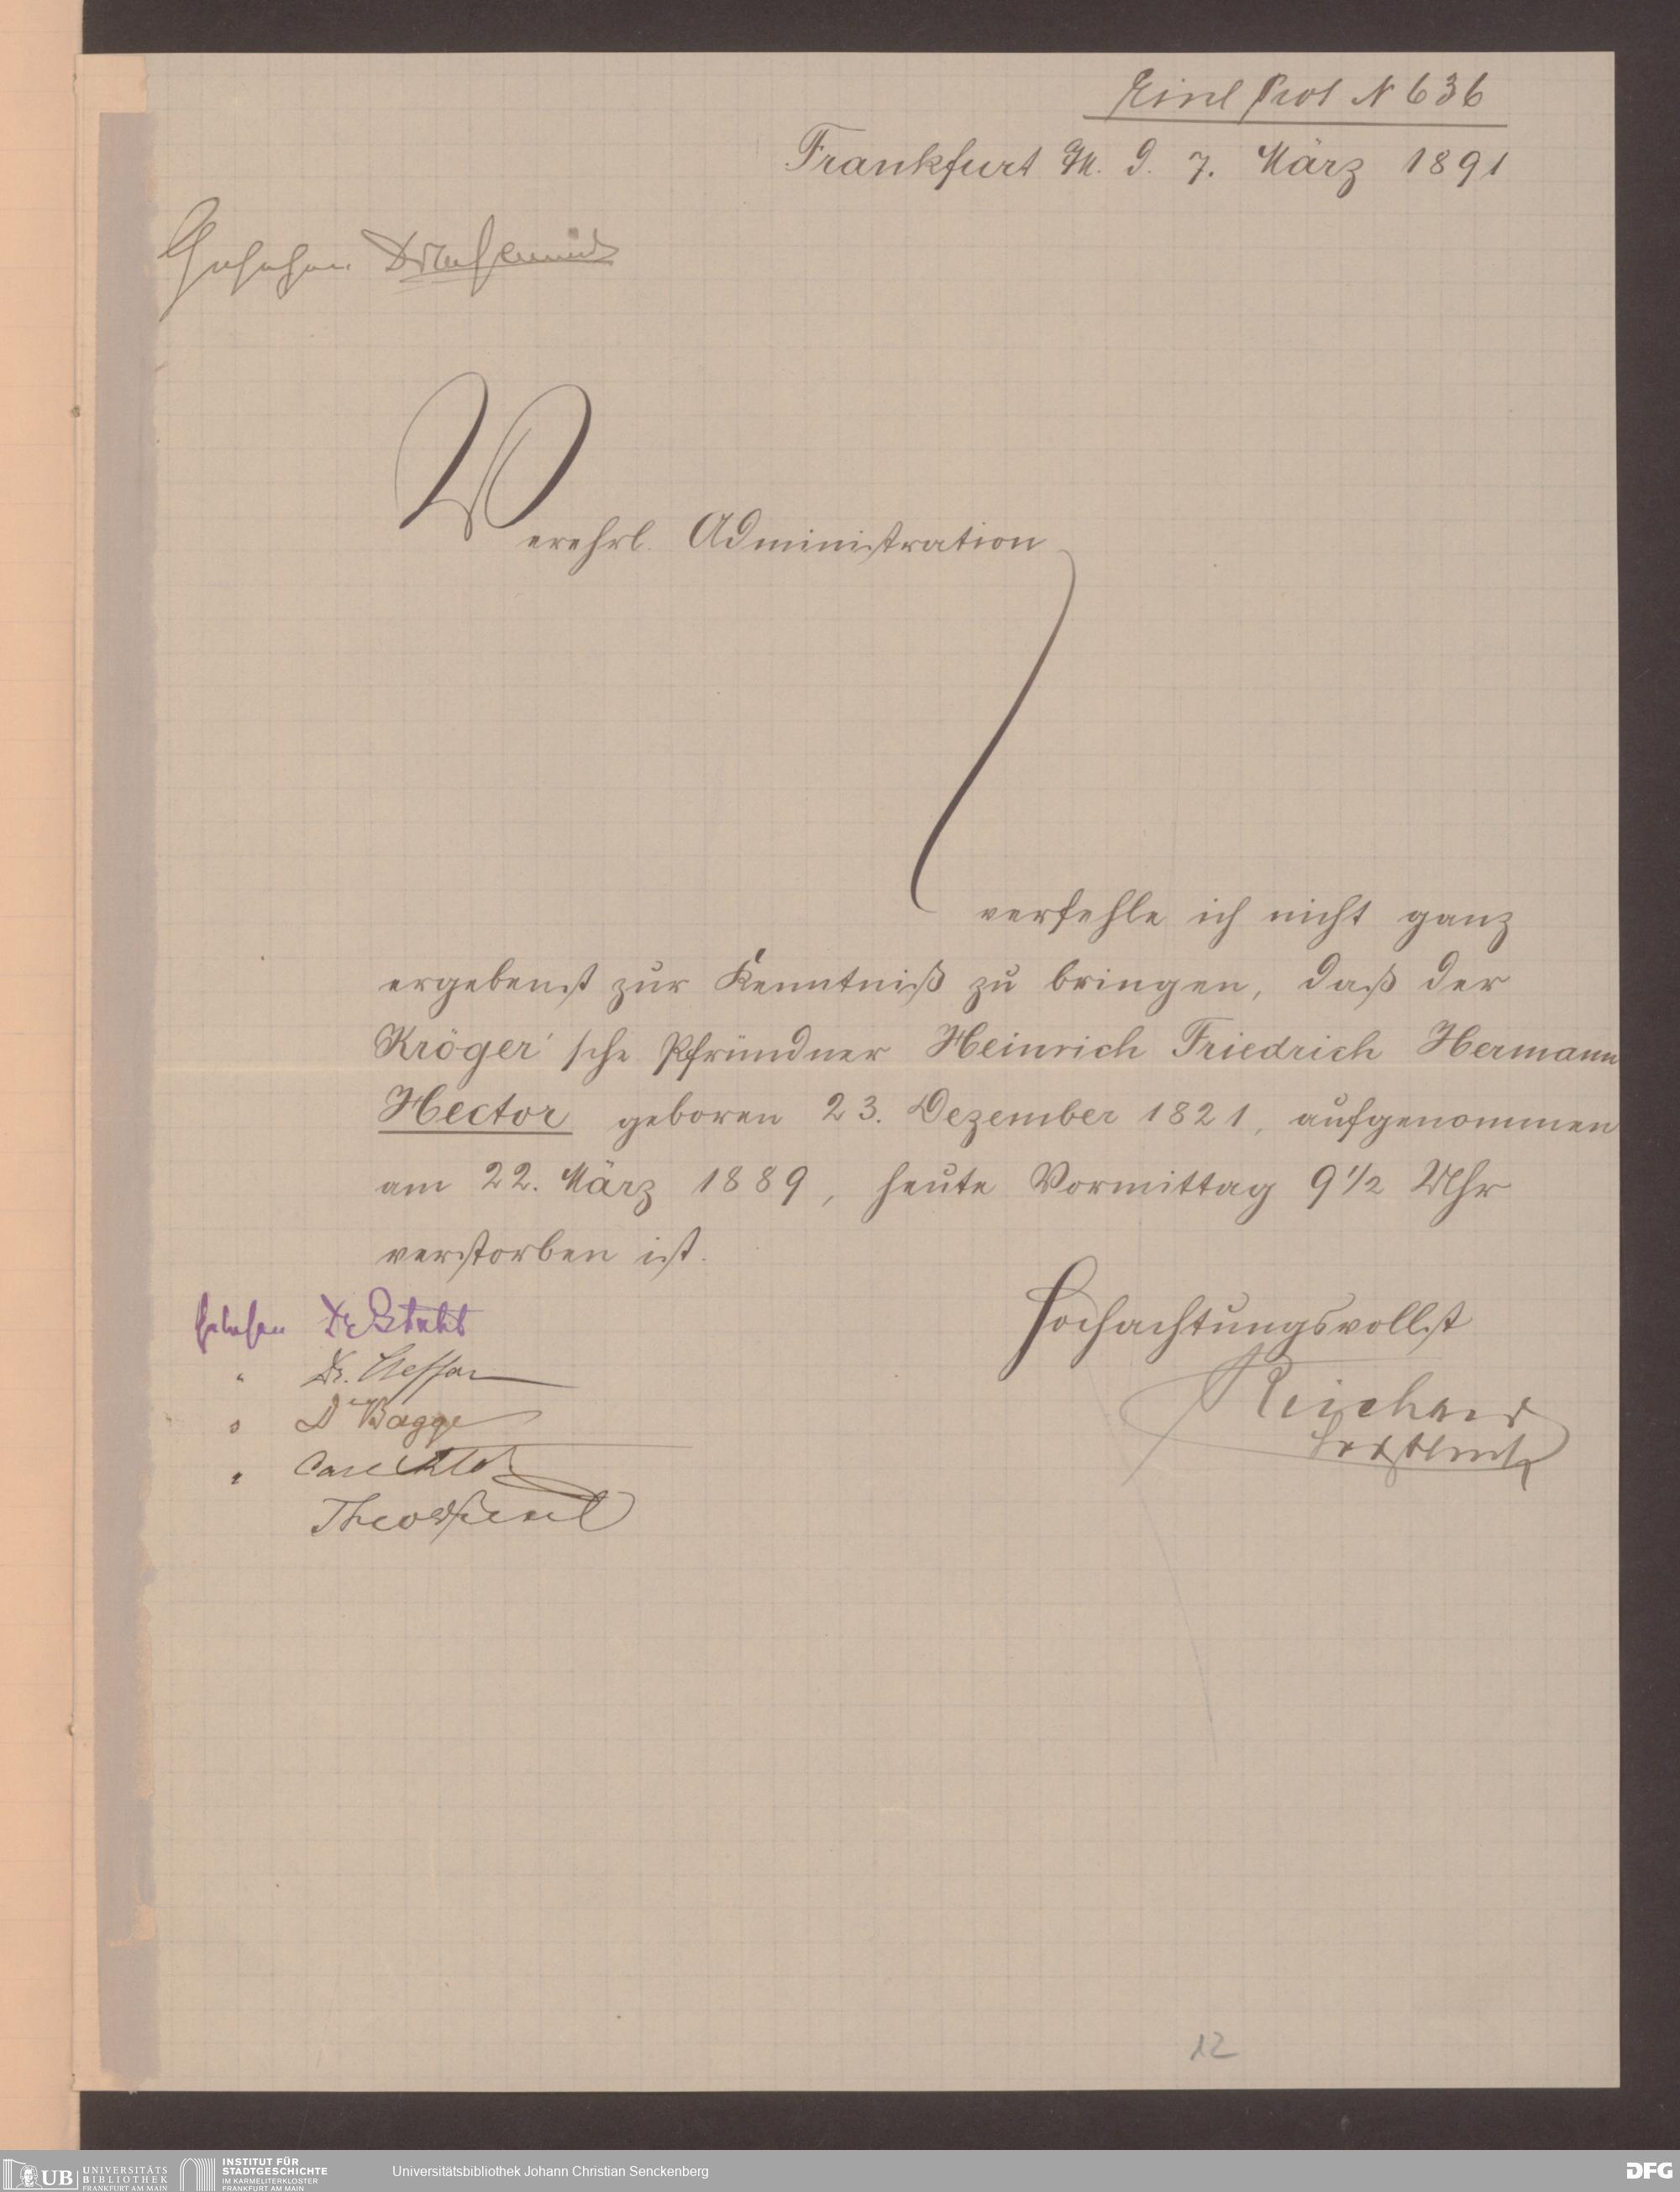 Einl Prot N 636
Frankfurt M. d. 7. März 1891
Gesehen
Verehrl. Administration
verfehle ich nicht ganz
ergebenst zur Kenntniß zu bringen, daß der
Kröger'sche Pfründner Heinrich Friedrich Hermann
Hector geboren 23. Dezember 1821, aufgenommen
am 22. März 1889, heute Vormittag 9 1/2 Uhr
verstorben ist.
Hochachtungsvollst
Reichard
Gelesen Dr
" Dr.
" Dr Bagge
"
Theod
12
UB UNIVERSITÄTS BIBLIOTHEK FRANKFURT AM MAIN
INSTITUT FÜR STADTGESCHICHTE IM KARMELITERKLOSTER FRANKFURT AM MAIN
Universitätsbibliothek Johann Christian Senckenberg
DFG